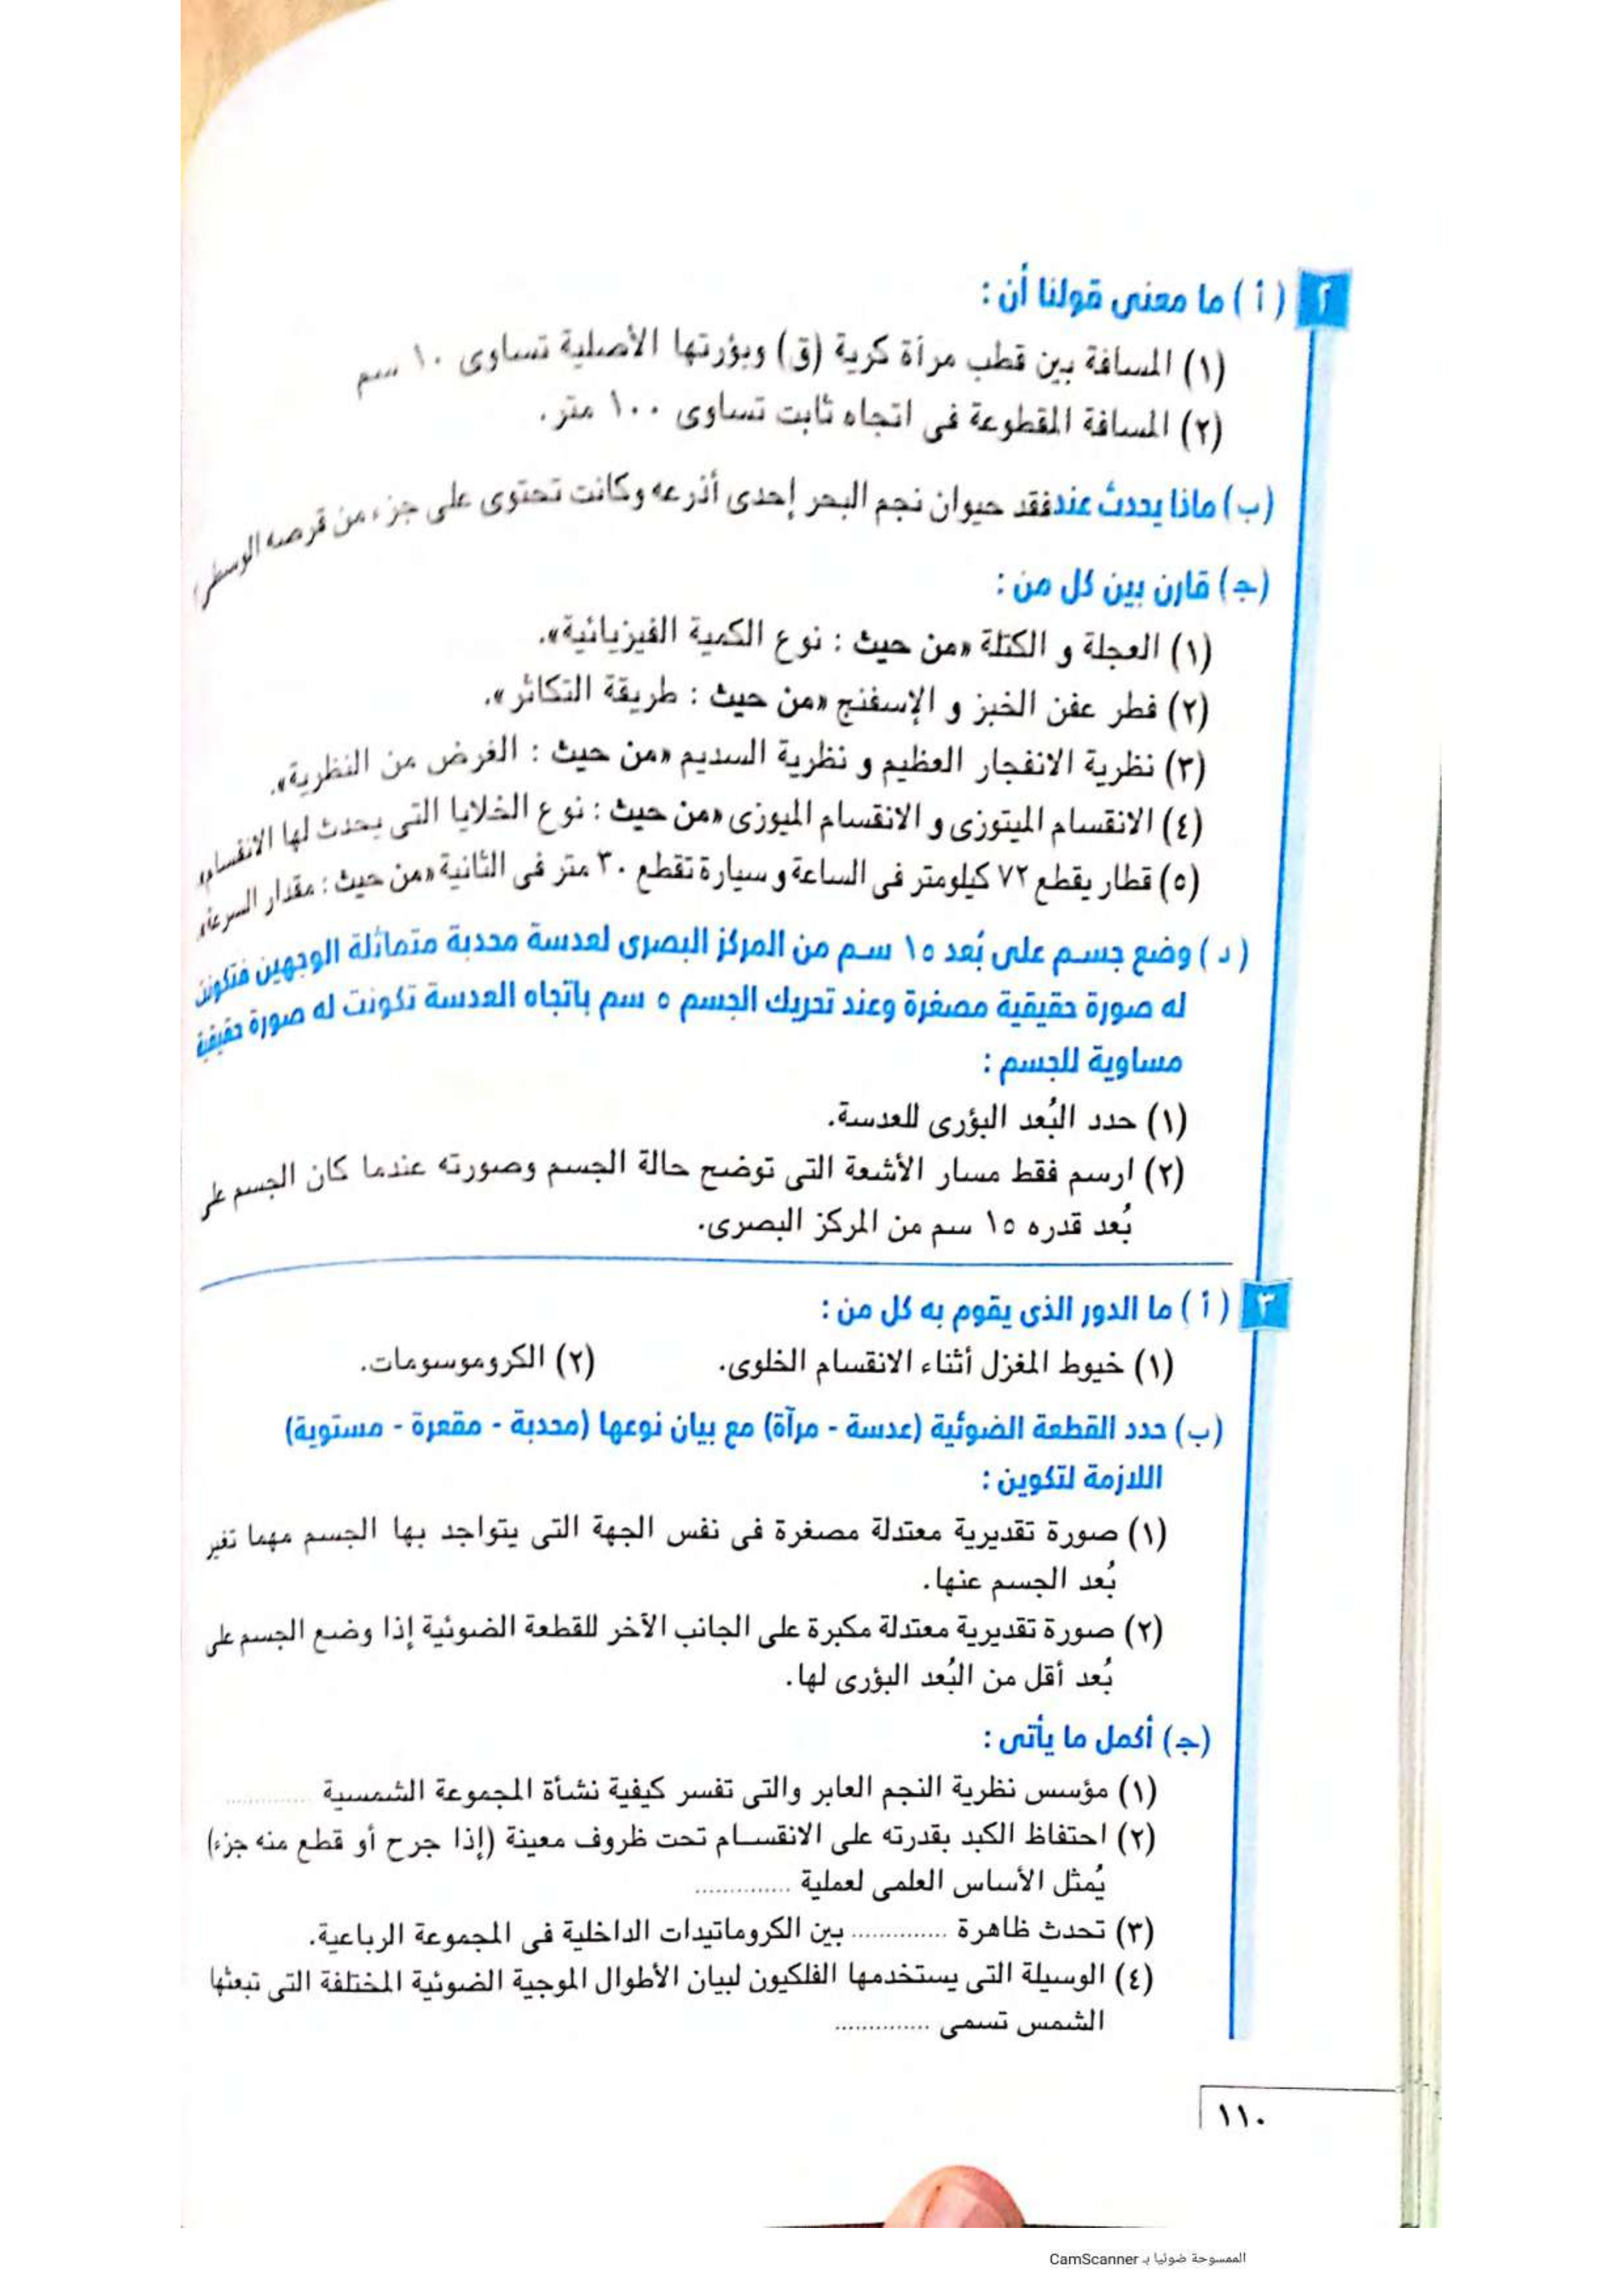 ٢ ( أ ) ما معنى قولنا أن :
(١) المسافة بين قطب مرآة كرية (ق) وبؤرتها الأصلية تساوى ١٠ سم
(٢) المسافة المقطوعة فى اتجاه ثابت تساوى ١٠٠ متر.
(ب) ماذا يحدث عند فقد حيوان نجم البحر إحدى أذرعه وكانت تحتوى على جزء من قرصه الوسطى
(جـ) قارن بين كل من :
(١) العجلة و الكتلة «من حيث : نوع الكمية الفيزيائية».
(٢) فطر عفن الخبز و الإسفنج «من حيث : طريقة التكاثر».
(٣) نظرية الانفجار العظيم و نظرية السديم «من حيث : الغرض من النظرية».
(٤) الانقسام الميتوزى و الانقسام الميوزى «من حيث : نوع الخلايا التى يحدث لها الانقسام»
(٥) قطار يقطع ٧٢ كيلومتر فى الساعة و سيارة تقطع ٣٠ متر فى الثانية «من حيث : مقدار السرعة»
( د ) وضع جسم على بُعد ١٥ سم من المركز البصرى لعدسة محدبة متماثلة الوجهين فتكونت
له صورة حقيقية مصغرة وعند تحريك الجسم ٥ سم باتجاه العدسة تكونت له صورة حقيقية
مساوية للجسم :
(١) حدد البُعد البؤرى للعدسة.
(٢) ارسم فقط مسار الأشعة التى توضح حالة الجسم وصورته عندما كان الجسم على
بُعد قدره ١٥ سم من المركز البصرى.
٣ ( أ ) ما الدور الذى يقوم به كل من :
(١) خيوط المغزل أثناء الانقسام الخلوى. (٢) الكروموسومات.
(ب) حدد القطعة الضوئية (عدسة - مرآة) مع بيان نوعها (محدبة - مقعرة - مستوية)
اللازمة لتكوين :
(١) صورة تقديرية معتدلة مصغرة فى نفس الجهة التى يتواجد بها الجسم مهما تغير
بُعد الجسم عنها.
(٢) صورة تقديرية معتدلة مكبرة على الجانب الآخر للقطعة الضوئية إذا وضع الجسم على
بُعد أقل من البُعد البؤرى لها.
(جـ) أكمل ما يأتى :
(١) مؤسس نظرية النجم العابر والتى تفسر كيفية نشأة المجموعة الشمسية ............
(٢) احتفاظ الكبد بقدرته على الانقسام تحت ظروف معينة (إذا جرح أو قطع منه جزء)
يُمثل الأساس العلمى لعملية ..............
(٣) تحدث ظاهرة .............. بين الكروماتيدات الداخلية فى المجموعة الرباعية.
(٤) الوسيلة التى يستخدمها الفلكيون لبيان الأطوال الموجية الضوئية المختلفة التى تبعثها
الشمس تسمى ..............
١١٠
الممسوحة ضوئيا بـ CamScanner